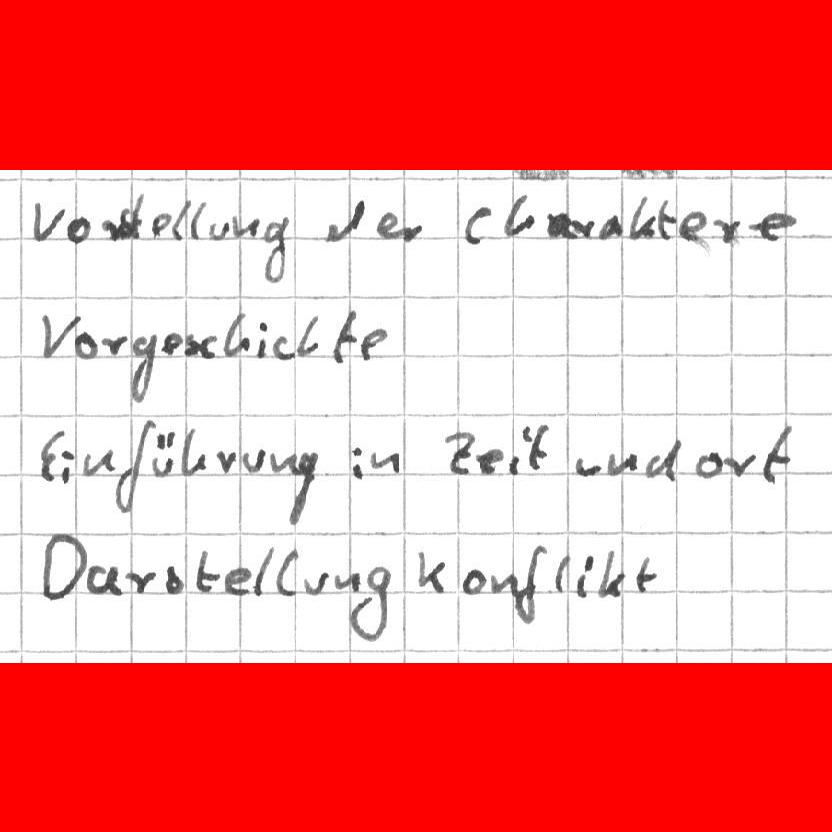 Vorstellung der Charaktere
Vorgeschichte
Einführung in Zeit und ort
Darstellung konflikt